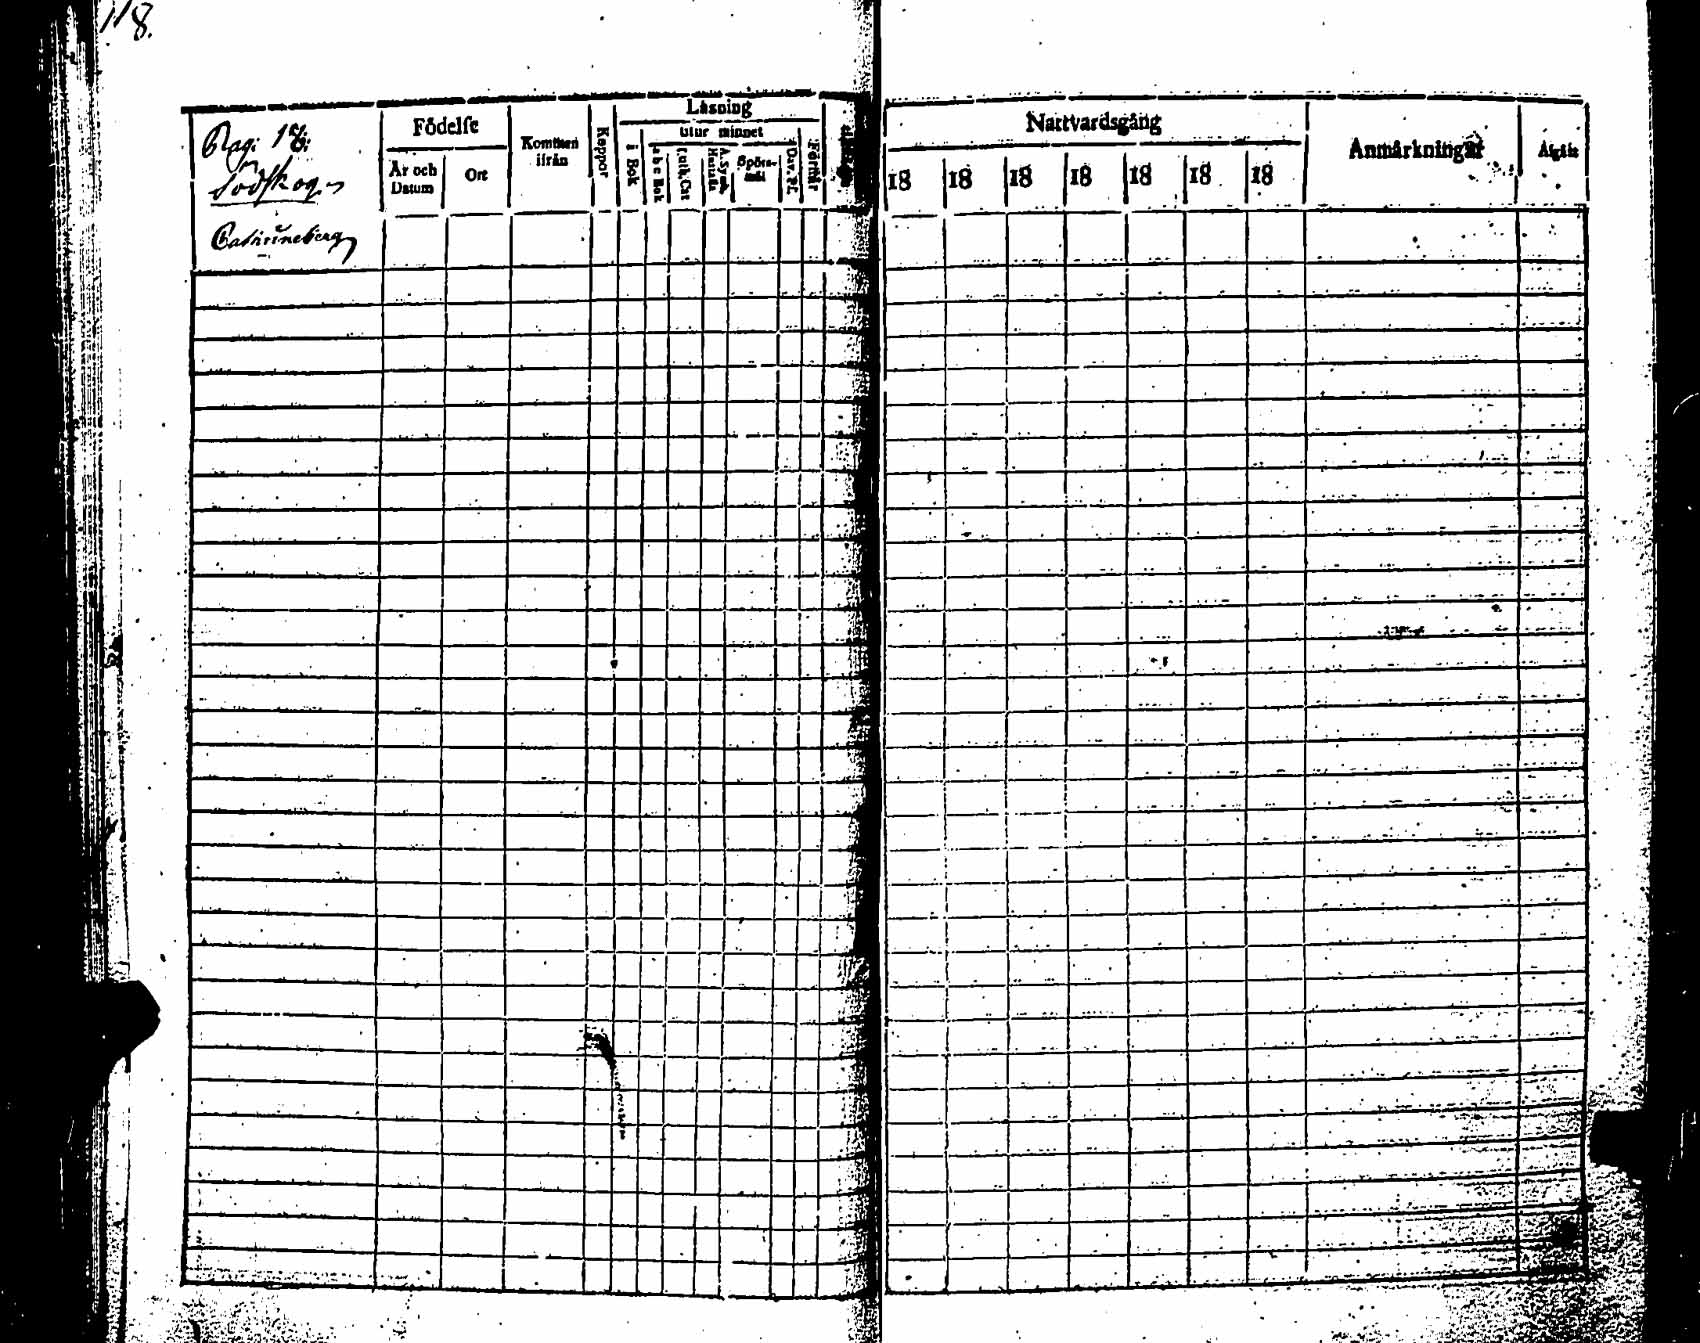 118.
Pag. 17:
Södskog
Cathrineberg
Födelse
År och Datum
Ort
Kommen ifrån
Koppor
Läsning
i Bok
utur minnet
a b c Bok
Luth. Cat
A. Symb.
Hustafla
Spörsmål
Dav. Ps.
Förstår
Nattvardsgång
18 18 18 18 18 18 18
Anmärkningar
Afgått